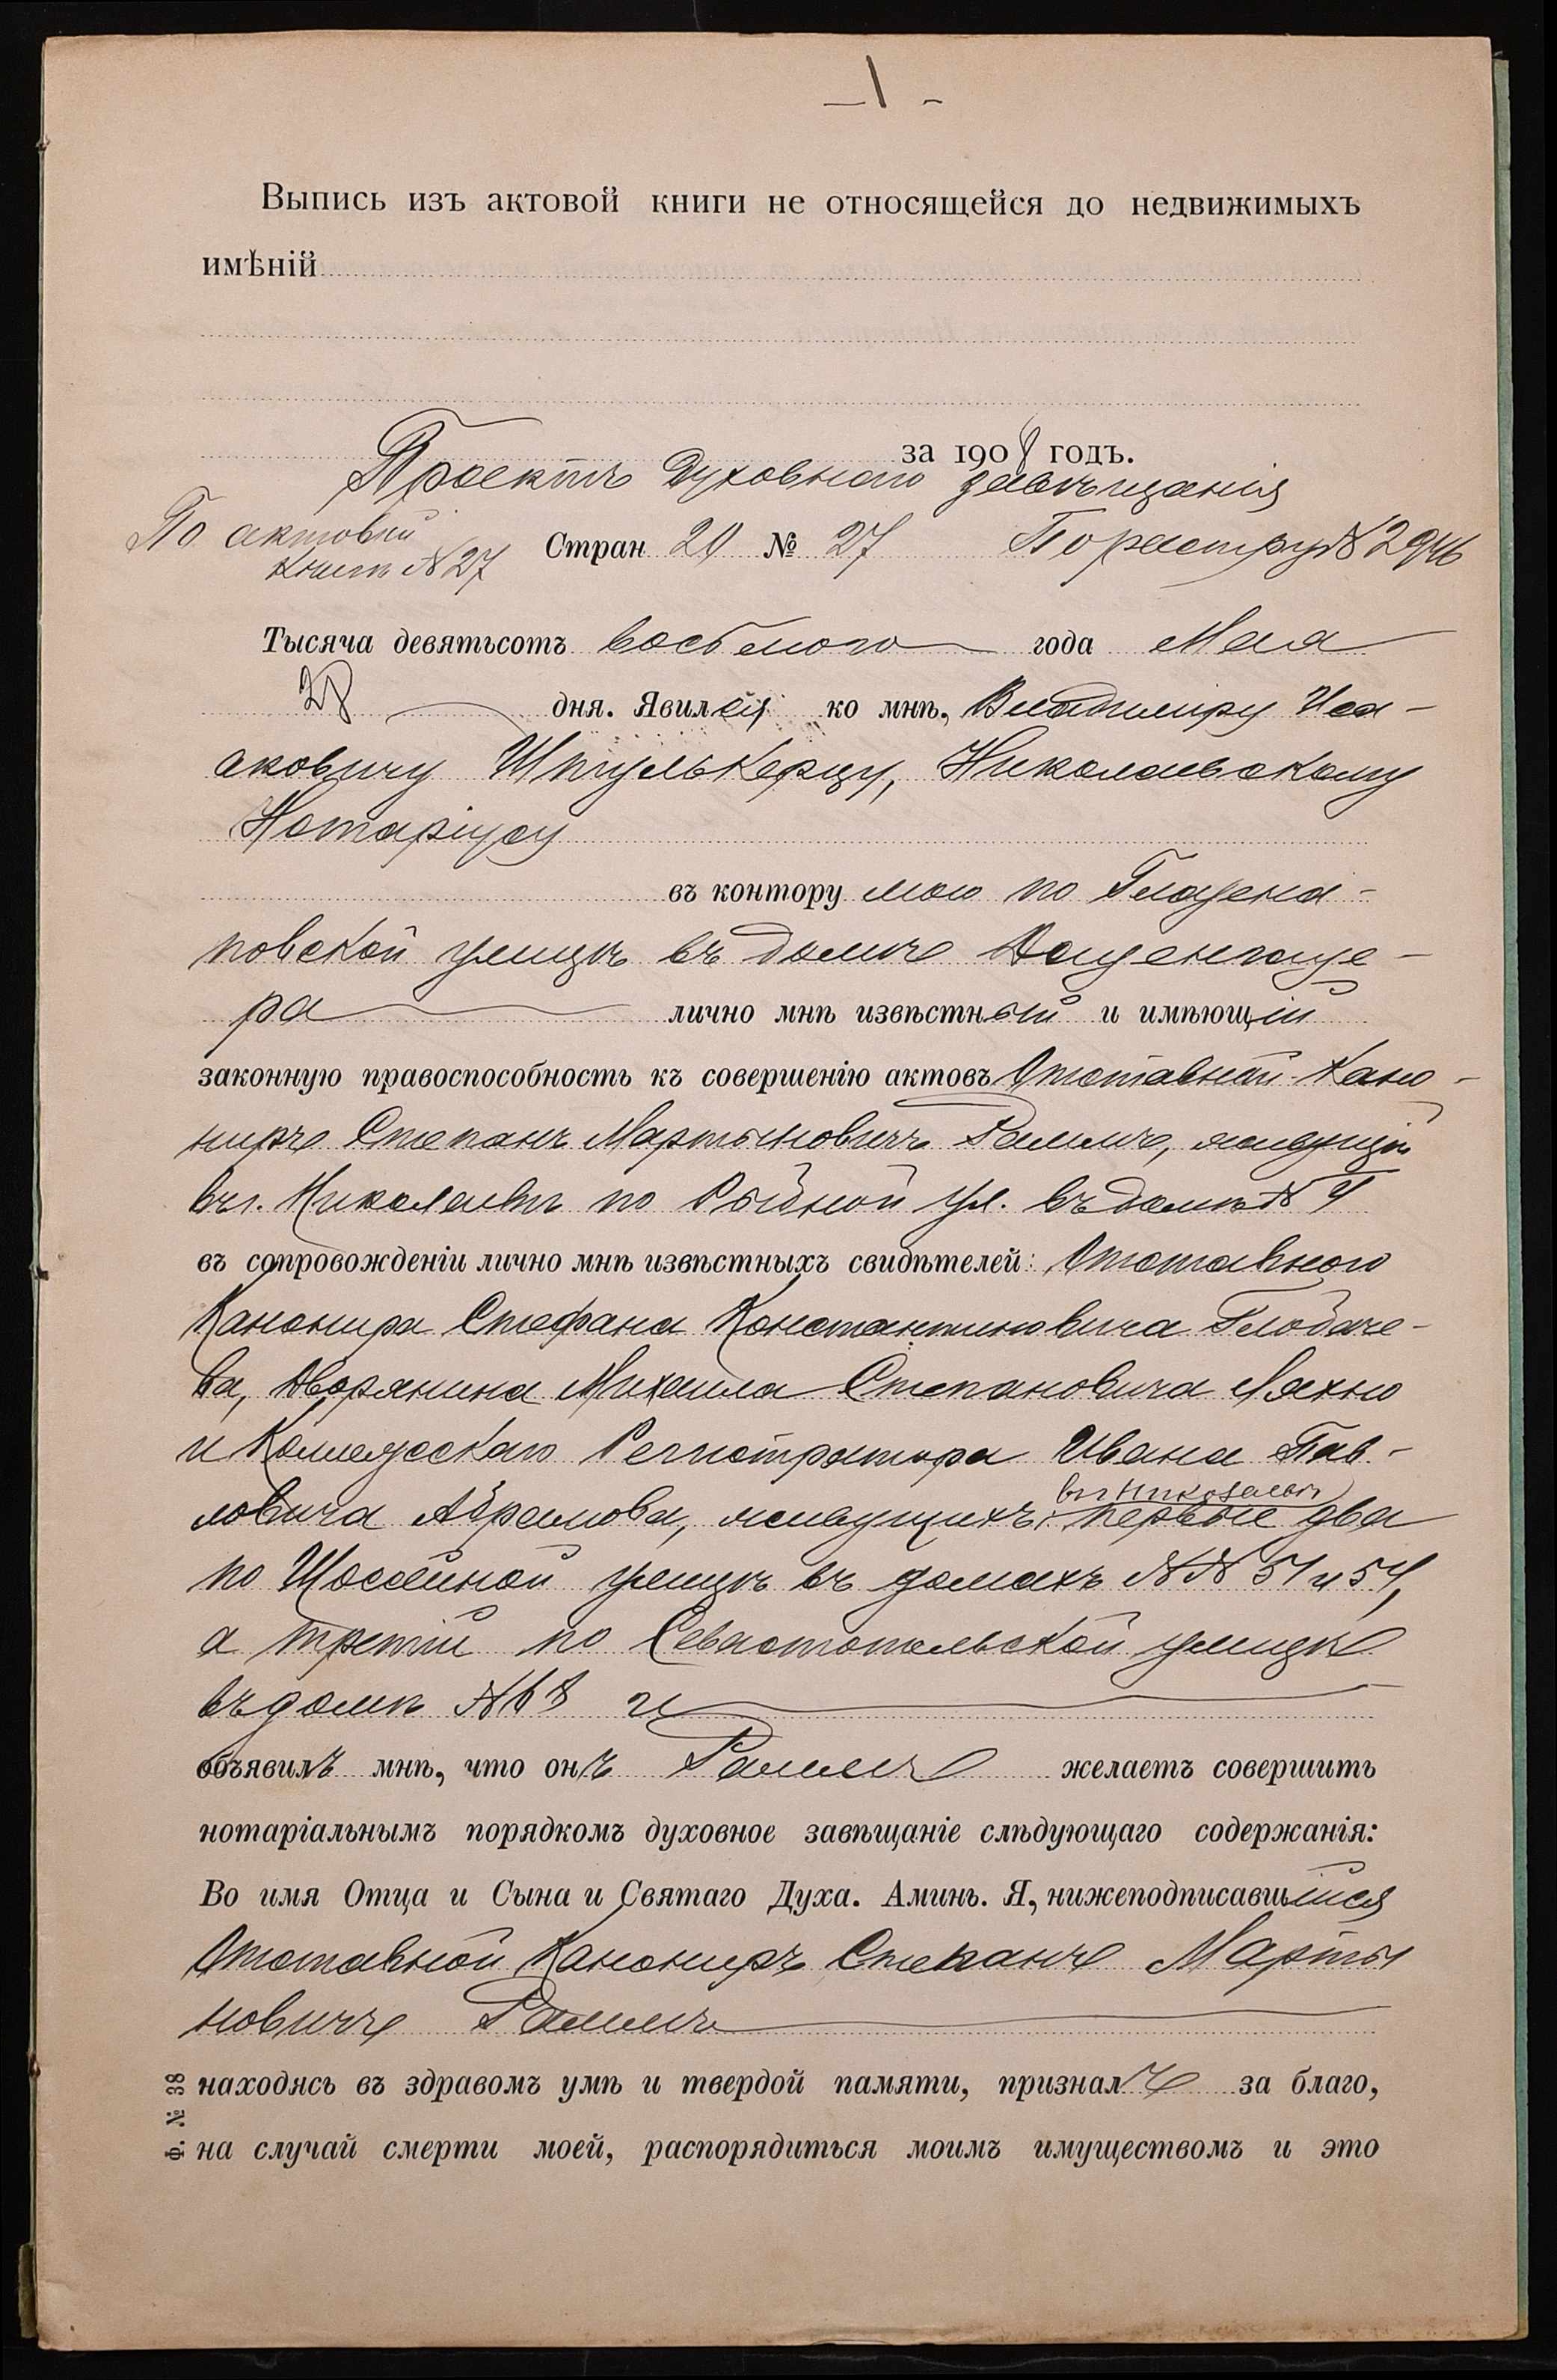 – 1 –
Выпись изъ актовой книги не относящейся до недвижимыхъ
имѣній
за 1908 годъ.
Проектъ Духовнаго завѣщанія
По актовой
книгѣ №27
Стран 20 № 27 По реестру № 2946
Тысяча девятьсотъ восьмого года Мая
28 дня. Явился ко мнѣ, Владиміру Иса-
аковичу Штулькерцу, Николаевскому
Нотаріусу
въ контору мою по Глазена-
повской улицѣ въ домѣ
ра лично мнѣ извѣстный и имѣющій
законную правоспособность къ совершенію актовъ Отставной Кано-
ниръ Степанъ Мартыновичъ живущій
въ г. Николаевѣ по Рыбной ул. въ домѣ № 4
въ сопровожденіи лично мнѣ извѣстныхъ свидѣтелей: Отставного
Канонира Стефана Константиновича Глобаче-
ва, Дворянина Михаила Степановича Махно
и Коллежскаго Регистратора Ивана Пав-
ловича Абрамова, живущихъ: въ г. Николаевѣ первые два
по Шоссейной улицѣ въ домахъ №№ 51 и 54,
а третій по Севастопольской улицѣ
въ домѣ № 68 и
объявилъ мнѣ, что онъ желаетъ совершить
нотаріальнымъ порядкомъ духовное завѣщаніе слѣдующаго содержанія:
Во имя Отца и Сына и Святаго Духа. Аминь. Я, нижеподписавшійся
Отставной Канониръ Степанъ Марты
новичъ
находясь въ здравомъ умѣ и твердой памяти, призналъ за благо,
на случай смерти моей, распорядиться моимъ имуществомъ и это
Ф. № 38